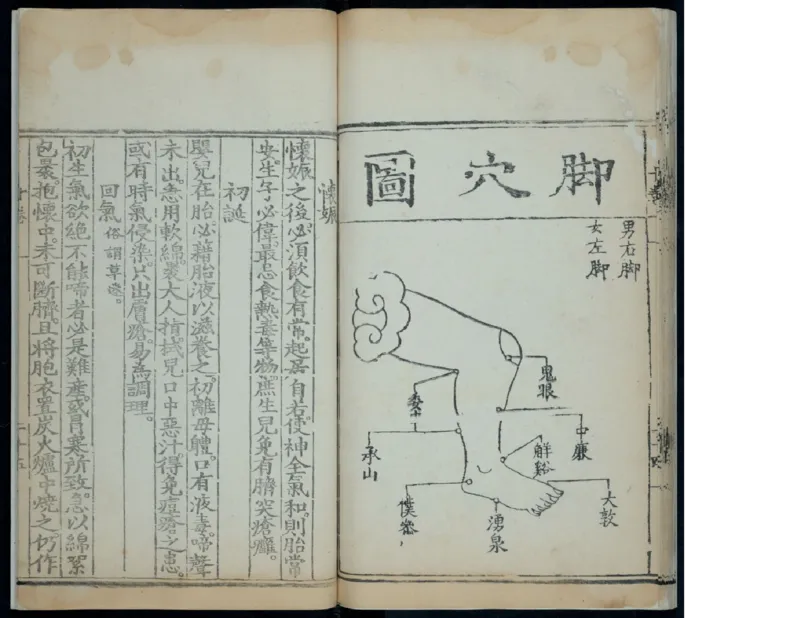 脚穴圖
男右脚
女左脚
鬼眼
中廉
解谿
大敦
湧泉
僕參
委中
承山
懷娠
懷娠之後。必須飲食有常。起居自若。使神全氣和。則胎常
安。生子必偉。最忌食熱毒等物。庶生兒免有臍突瘡癰。
初誕
嬰兒在胎必藉胎液以滋養之。初離母體。口有液毒。啼聲
未出。急用軟綿裹大人指拭兒口中惡汁。得免痘瘡之患。
或有時氣侵染。只出膚瘡。易為調理。
回氣 俗謂草迷。
初生氣欲絕不能啼者。必是難產。或冒寒所致。急以綿絮
包裹。抱懷中。未可斷臍。且將胞衣置炭火爐中燒之。仍作